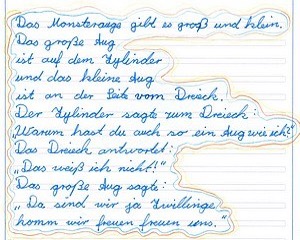 Das Monsterauge gibt es groß und klein.
Das große Aug
ist auf dem Zylinder
und das kleine Aug
ist an der Seite vom Dreieck.
Der Zylinder sagte zum Dreieck:
„Warum hast du auch so ein Aug wie ich?"
Das Dreieck antwortet:
„Das weiß ich nicht!"
Das große Aug sagte:
„Da sind wir ja Zwillinge
komm wir freuen freuen uns."